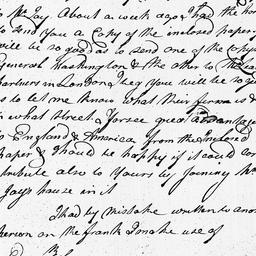 to Mr Jay. About a week ago I had the hon
to send you a Copy of the inclosed paper
will be so good as to send one of the copys
General Washington & the other to
partners in London, I beg you will be so g
as to let me know what their firm is &
in what Street. I forsee great advantage
to England & America from the inclosed
paper & should be happy if it could con
tribute also to Yours by joining
Jays house in it
I had by mistake written to ano
person on the frank I make use of